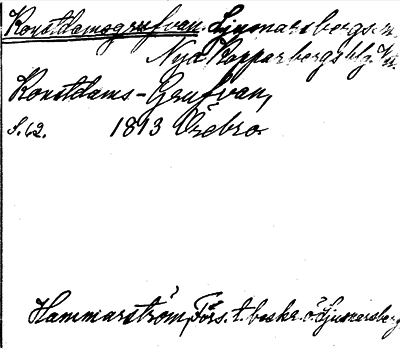 Konstdamsgrufvan. Ljusnarsbergs sn,
Nya Kopparbergs blg Ö.
Konstdams-Grufvan,
S. 62. 1813 Örebro
Hammarström, Förs. t. beskr. ö. Ljusnarsberg